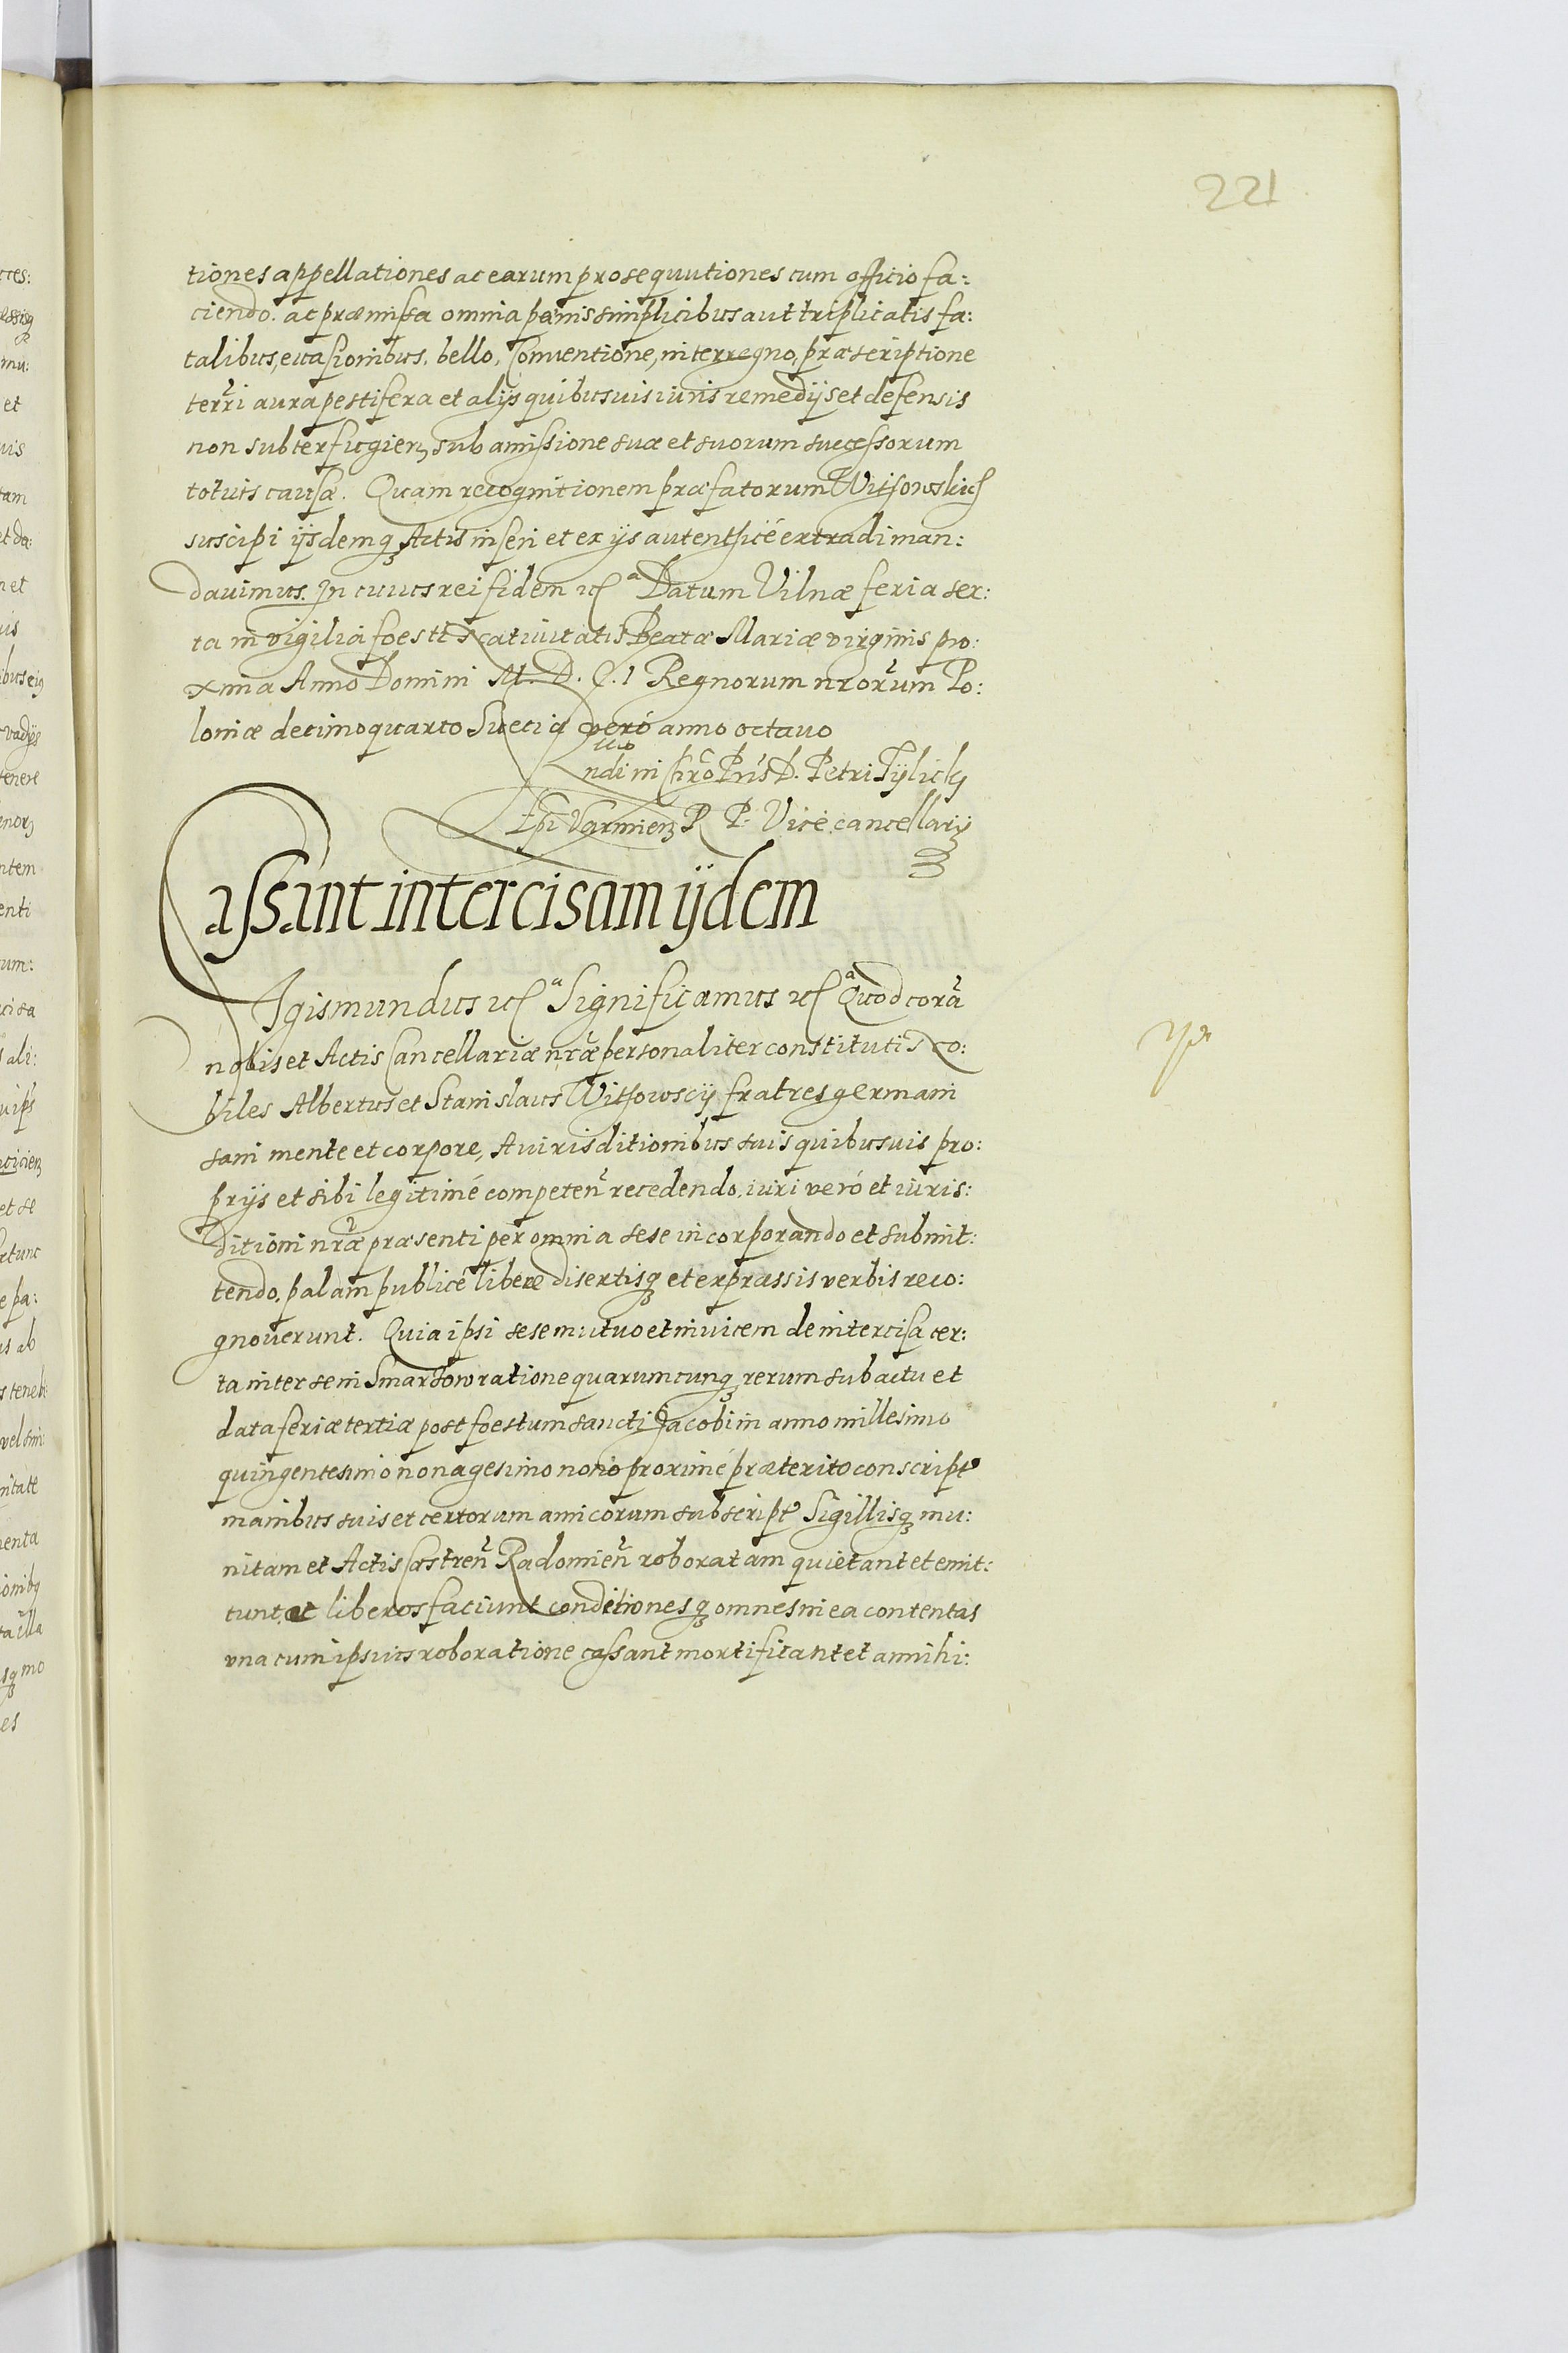 221
tiones appellationes ac earum prosequutiones cum officio fa:
ciendo. ac præmissa omnia pænis simplicibus aut triplicatis fa:
talibus, euasionibus, bello, Conuentione, interregno, præscriptione
terri aura pestifera et alijs quibusuis iuris remedijs et defensis
non subterfugien, sub amissione suæ et suorum successorum
totius causæ. Quam recognitionem præfatorum Withowskich
suscipi ijsdemq Actis inseri et ex ijs autenthicè extradi man:
dauimus. In cuius rei fidem etc Datum Vilnæ feria sex:
ta in vigilia foesti Natiuitatis Beatæ Mariæ virginis pro:
xima Anno Domini M. D. C. 1 Regnorum nrorum Po:
loniæ decimoquarto Sueciæ verò anno octauo
Rndi in Chro Pris D. Petri Tÿlicky
Epi Varmien R P. Vice cancellarij
Cassant intercisam ijdem
Sigismundus etc Significamus etc Quod corã
nobis et Actis Cancellariæ nræ personaliter constituti No:
biles Albertus et Stanislaus Withowscij fratres germani
sani mente et corpore, A iurisditionibus suis quibusuis pro:
prijs et sibi legitimè competen recedendo, iuri verò et iuris:
ditioni nræ præsenti per omnia sese incorporando et submit:
tendo, palam publicè liberè disertisq et expræssis verbis reco:
gnouerunt. Quia ipsi sese mutuo et inuicem de intercisa cer:
ta inter se in Smarzow ratione quarumcunq rerum sub actu et
data feriæ tertiæ post foestum sancti Jacobi in anno millesimo
quingentesimo nonagesimo nono proximè præterito conscript
manibus suis et certorum amicorum subscript Sigillisq mu:
nitam et Actis Castren Radomien roboratam quietant et emit:
tunt et liberos faciunt conditionesq omnes in ea contentas
vna cum ipsius roboratione cassant mortificant et annihi: